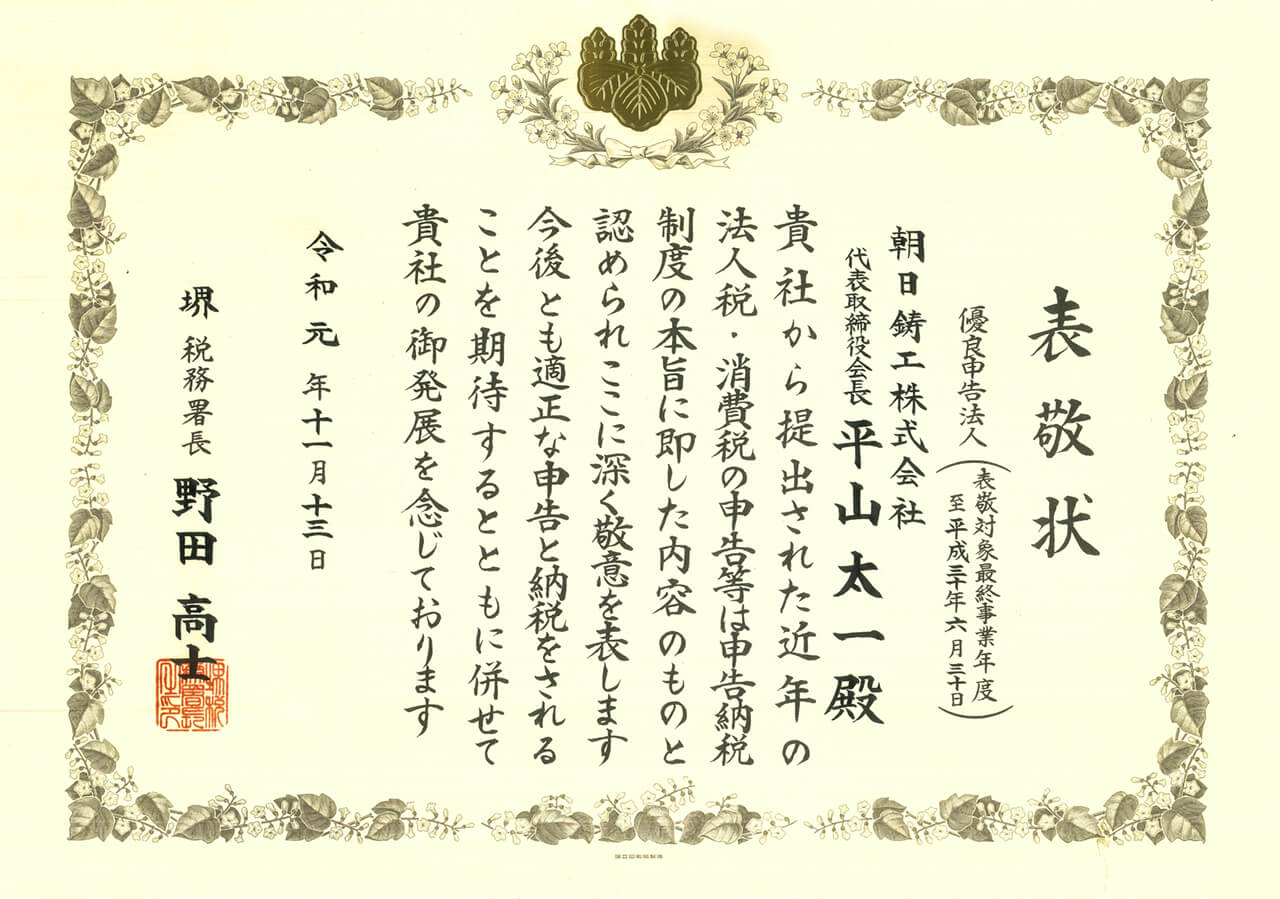 表敬状
優良申告法人
(表敬対象最終事業年度
至平成三十年六月三十日)
朝日鋳工株式会社
代表取締役会長 平山太一殿
貴社から提出された近年の
法人税・消費税の申告等は申告納税
制度の本旨に即した内容のものと
認められここに深く敬意を表します
今後とも適正な申告と納税をされる
ことを期待するとともに併せて
貴社の御発展を念じております
令和元年十一月十三日
堺税務署長 野田高士
国立印刷局製造